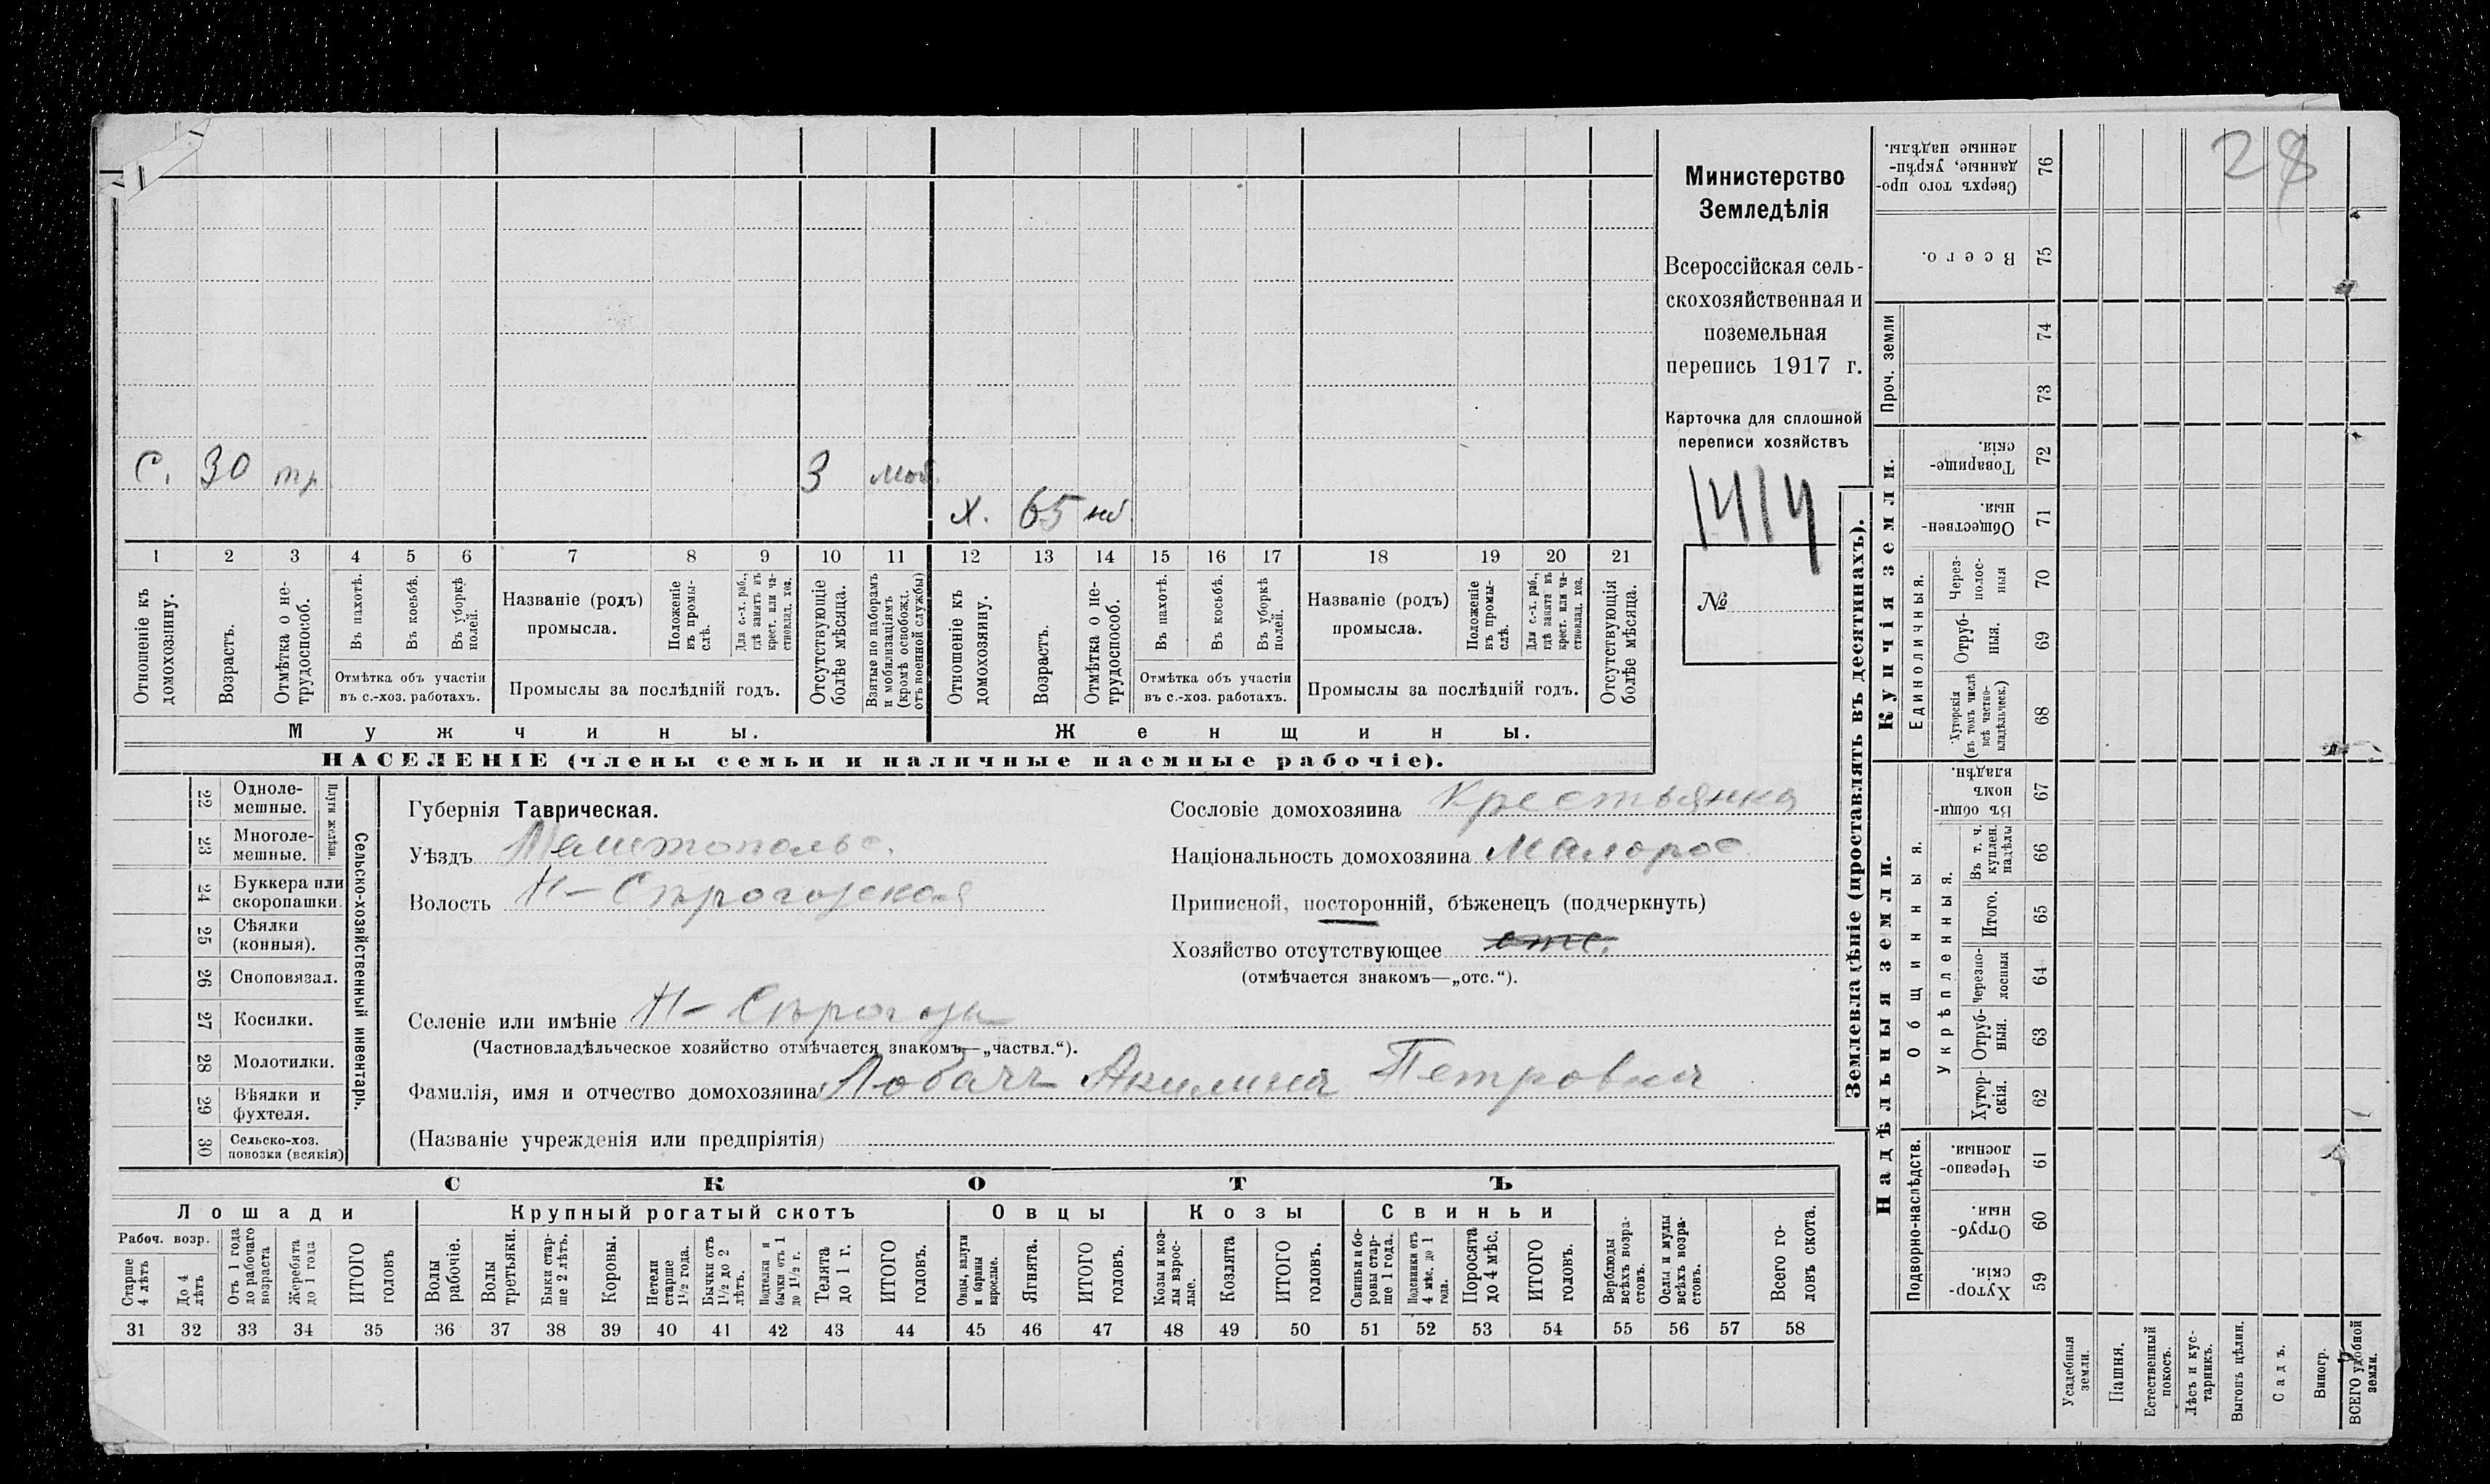 28
С. 30 тр 3 моб.
х. 65 нб.
1 2 3 4 5 6 7 8 9 10 11 12 13 14 15 16 17 18 19 20 21
Отношеніе къ домохозяину.
Возрастъ.
Отмѣтка о не-
трудоспособ.
Въ пахотѣ.
Въ косьбѣ.
Въ уборкѣ полей.
Отмѣтка объ участіи
въ с.-хоз. работахъ.
Названіе (родъ)
промысла.
Положеніе
въ промы-
слѣ.
Для с.-х. раб.,
гдѣ занятъ въ
крест. или ча-
стновлад. хоз.
Промыслы за послѣдній годъ.
Отсутствующіе
болѣе мѣсяца.
Взятые по наборамъ
и мобилизаціямъ
(кромѣ освобожд.
отъ военной службы)
Отношеніе къ
домохозяину.
Возрастъ.
Отмѣтка о не-
трудоспособ.
Въ пахотѣ.
Въ косьбѣ.
Въ уборкѣ
полей.
Отмѣтка объ участіи
въ с.-хоз. работахъ.
Названіе (родъ)
промысла.
Положеніе
въ промы-
слѣ.
Для с.-х. раб.,
гдѣ занята въ
крест. или ча-
стновлад. хоз.
Промыслы за послѣдній годъ.
Отсутствующія
болѣе мѣсяца.
Мужчины.
Женщины.
НАСЕЛЕНІЕ (члены семьи и наличные наемные рабочіе).
Министерство
Земледѣлія
Всероссійская сель-
скохозяйственная и
поземельная
перепись 1917 г.
Карточка для сплошной
переписи хозяйствъ
1414
№
22 Одноле-
мешные.
23 Многоле-
мешные.
Плуги желѣзн.
24 Буккера или
скоропашки
25 Сѣялки
(конныя).
26 Сноповязал.
27 Косилки.
28 Молотилки.
29 Вѣялки и
фухтеля.
30 Сельско-хоз.
повозки (всякія)
Сельско-хозяйственный инвентарь.
Губернія Таврическая.
Уѣздъ Мелитопольс.
Волость Н-Сѣрогозская
Селеніе или имѣніе Н-Сѣрогозы
(Частновладѣльческое хозяйство отмѣчается знакомъ—„частвл.“).
Фамилія, имя и отчество домохозяина Лобачъ Акилина Петровна
(Названіе учрежденія или предпріятія)
Сословіе домохозяина Крестьянка
Національность домохозяина Малорос
Приписной, посторонній, бѣженецъ (подчеркнуть)
Хозяйство отсутствующее отс.
(отмѣчается знакомъ—„отс.“).
СКОТЪ
Лошади
Рабоч. возр.
Старше
4 лѣтъ
До 4
лѣтъ
Отъ 1 года
до рабочаго
возраста
Жеребята
до 1 года
ИТОГО
головъ
Крупный рогатый скотъ
Волы
рабочіе.
Волы
третьяки.
Быки стар-
ше 2 лѣтъ.
Коровы.
Нетели
старше
1½ года.
Бычки отъ
1½ до 2
лѣтъ.
Подтелки и
бычки отъ 1
до 1½ г.
Телята
до 1 г.
ИТОГО
головъ.
Овцы
Овцы, валухи
и бараны
взрослые.
Ягнята.
ИТОГО
головъ.
Козы
Козы и коз-
лы взрос-
лые.
Козлята
ИТОГО
головъ.
Свиньи
Свиньи и бо-
ровы стар-
ше 1 года.
Подсвинки отъ
4 мѣс. до 1
года.
Поросята
до 4 мѣс.
ИТОГО
головъ.
Верблюды
всѣхъ возра-
стовъ.
Ослы и мулы
всѣхъ возра-
стовъ.
Всего го-
ловъ скота.
31 32 33 34 35 36 37 38 39 40 41 42 43 44 45 46 47 48 49 50 51 52 53 54 55 56 57 58
Землевладѣніе (проставлять въ десятинахъ).
Сверхъ того про-
данные, укрѣп-
ленные надѣлы. 76
Всего. 75
Проч. земли
74
73
Купчія земли.
Товарище-
скія. 72
Обществен-
ныя. 71
Единоличныя.
Через-
полос-
ныя 70
Отруб-
ныя. 69
Хуторскія
(въ томъ числѣ
всѣ частно-
владѣльческ.) 68
Надѣльныя земли.
Общинныя.
Въ общин-
номъ
владѣн. 67
Укрѣпленныя.
Въ т. ч.
куплен.
надѣлы 66
Итого. 65
Черезпо-
лосныя 64
Отруб-
ныя. 63
Хутор-
скія. 62
Подворно-наслѣдств.
Черезпо-
лосныя. 61
Отруб-
ныя. 60
Хутор-
скія. 59
Усадебныя
земли.
Пашня.
Естественный
покосъ.
Лѣсъ и кус-
тарникъ.
Выгонъ цѣлин.
Садъ.
Виногр.
ВСЕГО удобной
земли.